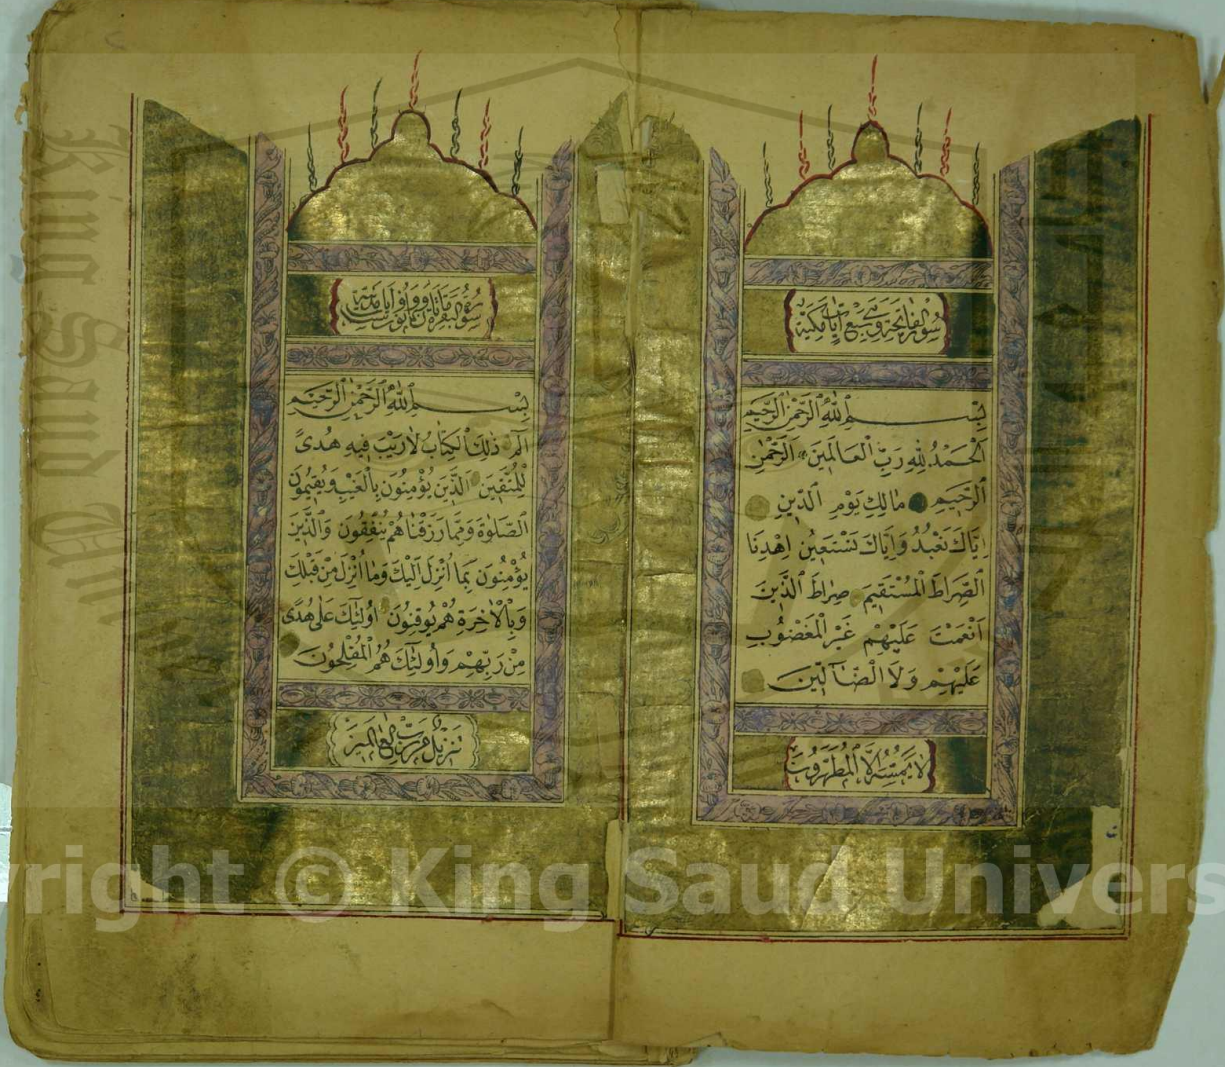 سورة الفاتحة وهي سبع آيات مكية
بِسْمِ اللّٰهِ الرَّحْمٰنِ الرَّحِيمِ
اَلْحَمْدُ لِلّٰهِ رَبِّ الْعَالَمِينَ اَلرَّحْمٰنِ
الرَّحِيمِ مَالِكِ يَوْمِ الدِّينِ
اِيَّاكَ نَعْبُدُ وَاِيَّاكَ نَسْتَعِينُ اِهْدِنَا
الصِّرَاطَ الْمُسْتَقِيمَ صِرَاطَ الَّذِينَ
اَنْعَمْتَ عَلَيْهِمْ غَيْرِ الْمَغْضُوبِ
عَلَيْهِمْ وَلَا الضَّآلِّينَ
لا يمسه إلا المطهرون
سورة البقرة
بِسْمِ اللّٰهِ الرَّحْمٰنِ الرَّحِيمِ
الٓمٓ ذٰلِكَ الْكِتَابُ لَا رَيْبَ فِيهِ هُدًى
لِلْمُتَّقِينَ الَّذِينَ يُؤْمِنُونَ بِالْغَيْبِ وَيُقِيمُونَ
الصَّلٰوةَ وَمِمَّا رَزَقْنَاهُمْ يُنْفِقُونَ وَالَّذِينَ
يُؤْمِنُونَ بِمَا اُنْزِلَ اِلَيْكَ وَمَا اُنْزِلَ مِنْ قَبْلِكَ
وَبِالْاٰخِرَةِ هُمْ يُوقِنُونَ اُولٰئِكَ عَلٰى هُدًى
مِنْ رَبِّهِمْ وَاُولٰئِكَ هُمُ الْمُفْلِحُونَ
تنزيل من رب العالمين
King Saud
yright © King Saud Univers